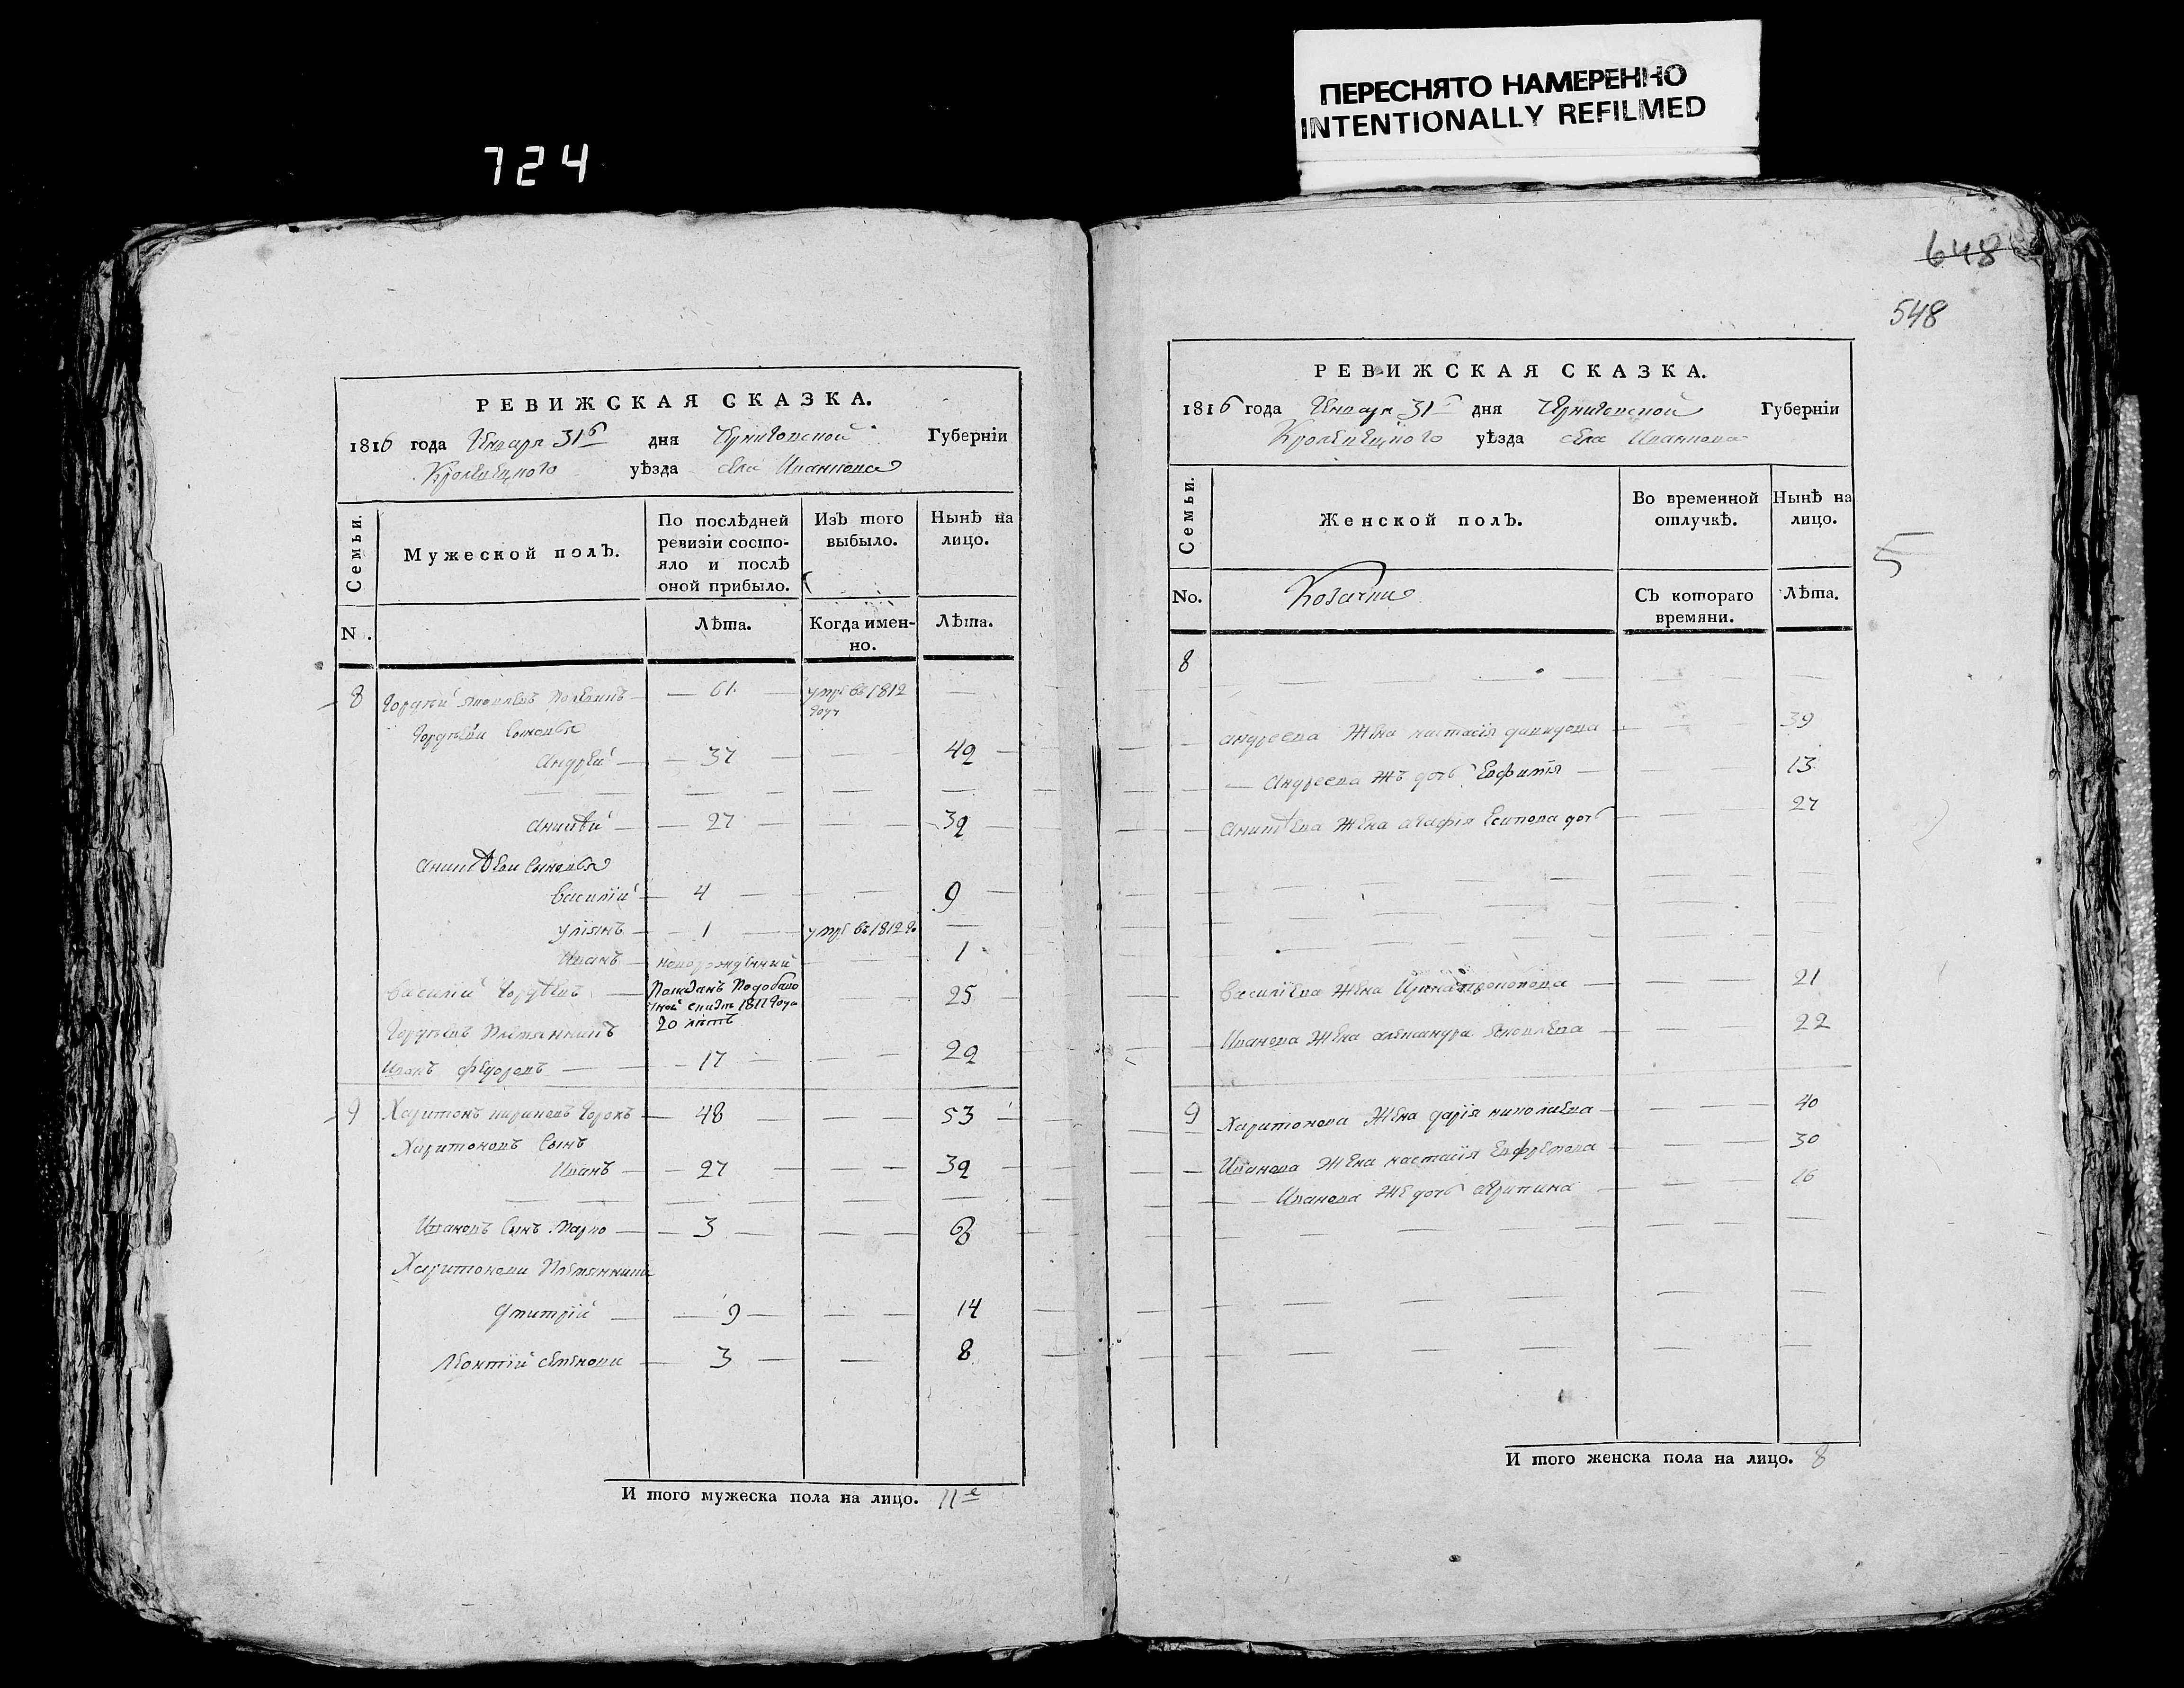 ПЕРЕСНЯТО НАМЕРЕННО
INTENTIONALLY REFILMED
724
РЕВИЖСКАЯ СКАЗКА.
1816 года Января 31 дня Черниговской Губерніи
Кролевецкого уѣзда села
Семьи.
Мужеской полъ.
По послѣдней ревизіи состо-
яло и послѣ
оной прибыло.
Изъ того
выбыло.
Нынѣ на
лицо.
N.
Лѣта.
Когда имен-
но.
Лѣта.
8 Гордѣй 61 умре въ 1812
году
Гордѣеви сыновья
Андрей 37 42
27 32
сыновья
Василій 4 9
Уліянъ 1 умре въ 1812 го
Иванъ новорожденний 1
Василій Гордѣевъ 25
1811 года
20 лѣтъ
Гордѣевъ племянникъ
Иванъ Федоровъ 17 22
9 Харитонъ 48 53
Харитоновъ сынъ
Иванъ 27 32
Ивановъ сынъ Марко 3 8
Харитонови племянники
Дмитрій 9 14
Леонтій Семенови 3 8
И того мужеска пола на лицо. 11
648
548
РЕВИЖСКАЯ СКАЗКА.
1816 года Января 31 дня Черниговской Губерніи
Кролевецкого уѣзда села
5
Семьи.
Женской полъ.
Во временной
отлучкѣ.
Нынѣ на
лицо.
No.
Козачки
Съ котораго
времяни.
Лѣта.
8
Андреева жена Настасія Давидова 39
Андреева жъ дочь Евфимія 13
жена Агафія Есипова дочь 27
Василіева жена Ирина 21
Иванова жена Александра Яковлева 22
9 Харитонова жена Дарія Николаева 40
Иванова жена Настасія Евфремова 30
Иванова же дочь Агрипина 16
И того женска пола на лицо. 8